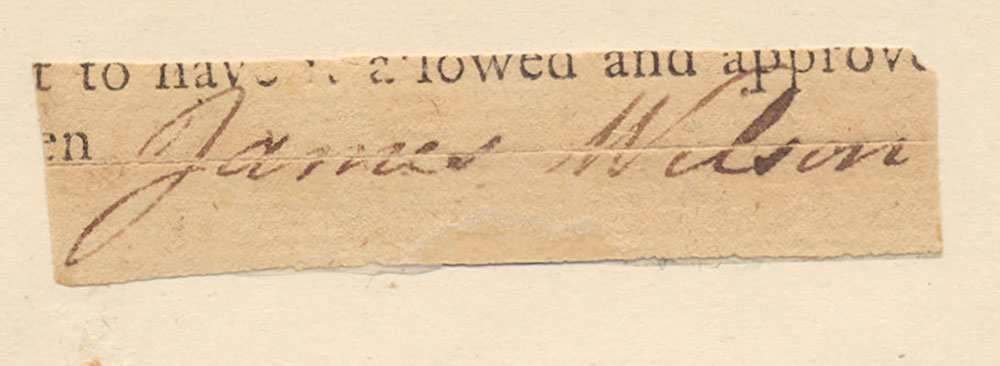 t to have it allowed and approve
en James Wilson